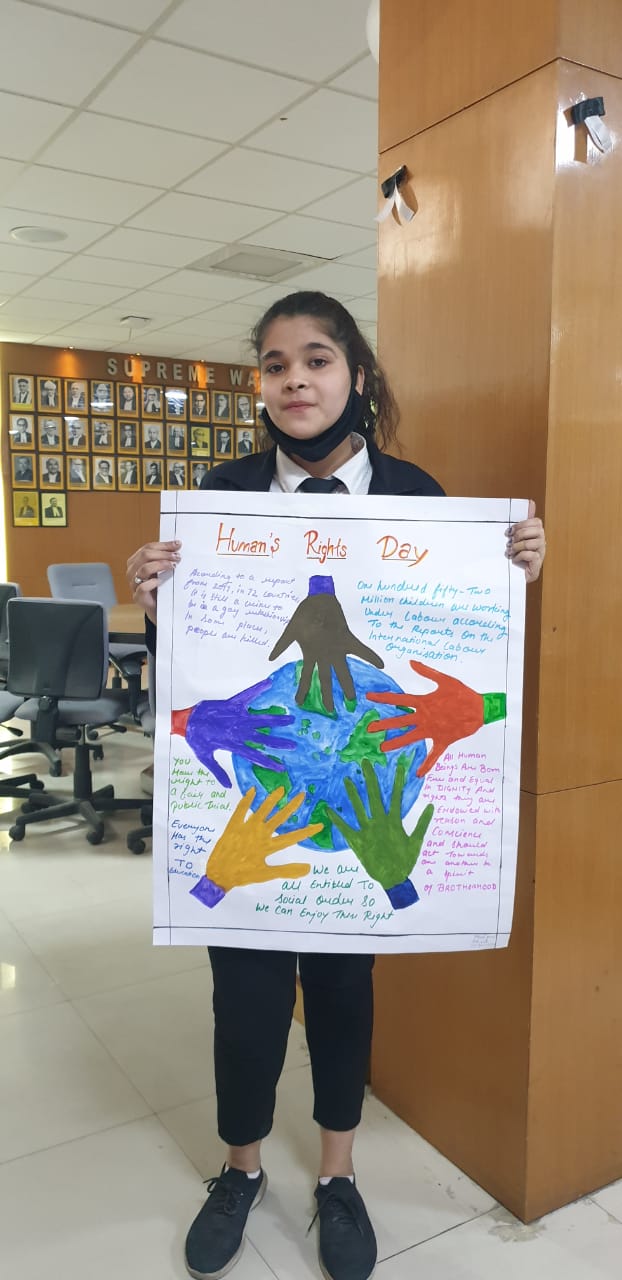 SUPREME WA
Human's Rights Day
According to a report
from 2017, in 72 countries
it is still a crime to
be in a gay relationship
In some places,
people are killed.
One hundred fifty-Two
Million children are working
Under Labour according
To the Reports On the
International Labour
Organisation.
You
Have the
right to
a fair and
public Trial.
Everyone
Has the
right
To
Education
All Human
Beings Are Born
Free and Equal
In DIGNITY And
rights they are
ENDOWED with
reason and
Conscience
and should
act Towards
one another in
a spirit
of BROTHERHOOD
We are
all Entitled To
Social Order So
We Can Enjoy This Right